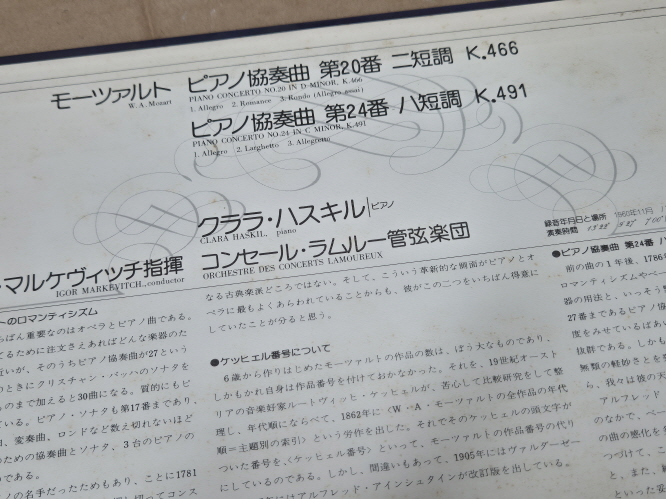 モーツァルト
W. A. Mozart
ピアノ協奏曲 第20番 ニ短調 K.466
PIANO CONCERTO NO.20 IN D MINOR, K.466
1. Allegro 2. Romance 3. Rondo (Allegro assai)
ピアノ協奏曲 第24番 ハ短調 K.491
PIANO CONCERTO NO.24 IN C MINOR, K.491
1. Allegro 2. Larghetto 3. Allegretto
クララ・ハスキル|ピアノ
CLARA HASKIL, piano
・マルケヴィッチ指揮
IGOR MARKEVITCH, conductor
コンセール・ラムルー管弦楽団
ORCHESTRE DES CONCERTS LAMOUREUX
録音年月日と場所 1960年11月
演奏時間
トのロマンティシズム
ちばん重要なのはオペラとピアノ曲である。
てるために注文さえあればどんな楽器のた
近いが、そのうちピアノ協奏曲が27という
のときにクリスチャン・バッハのソナタを
ものまで加えると30曲になる。質的にもピ
ている。ピアノ・ソナタも第17番まであり、
曲、変奏曲、ロンドなど数え切れないほど
のための協奏曲とソナタ、3台のピアノの
のである。
ノの名手だったためもあり、ことに1781
なる古典楽派どころではない。そして、こういう革新的な側面がピアノとオ
ペラに最もよくあらわれていることからも、彼がこの二つをいちばん得意に
していたことが分ると思う。
●ケッヒェル番号について
6歳から作りはじめたモーツァルトの作品の数は、ぼう大なものであり、
しかもかれ自身は作品番号を付けておかなかった。それを、19世紀オースト
リアの音楽好家ルートヴィッヒ・ケッヒェルが、苦心して比較研究をして整
理し、年代順にならべて、1862年に〈W・A・モーツァルトの全作品の年代
順=主題別の索引〉という労作を出した。それでそのケッヒェルの頭文字が
ついた番号を、〈ケッヒェル番号〉といって、モーツァルトの作品番号の代り
にしているのである。しかし、間違いもあって、1905年にはヴァルダーゼー
にはアルフレッド・アインシュタインが改訂版を出している。
●ピアノ協奏曲 第24番 ハ
前の曲の1年後、1786
ロマンティシズムやベー
器の用法と、いっそう
27番まであるピアノ協
度をみせているばあ
抜群である。しかも
無類の軽妙さとを
ら、我々は彼の天
アルフレッド・
のなかで、ベー
の曲の悪化を
つづけて、こ
と、また、
といった